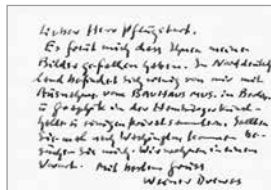 Lieber Herr Pflugstert.
Es freut mich dass Ihnen meine
Bilder gefallen haben. In Norddeutsch
land befindet sich wenig von mir mit
Ausnahme vom BAUHAUS MUS. in Berlin
u Graphik in der Hamburger Kunst-
halle u einigen privat sammlern. Sollten
Sie mal nach Washington kommen be-
suchen Sie mich. Wir wohnen in einem
Vorort. Mit besten Gruss
Werner Drewes